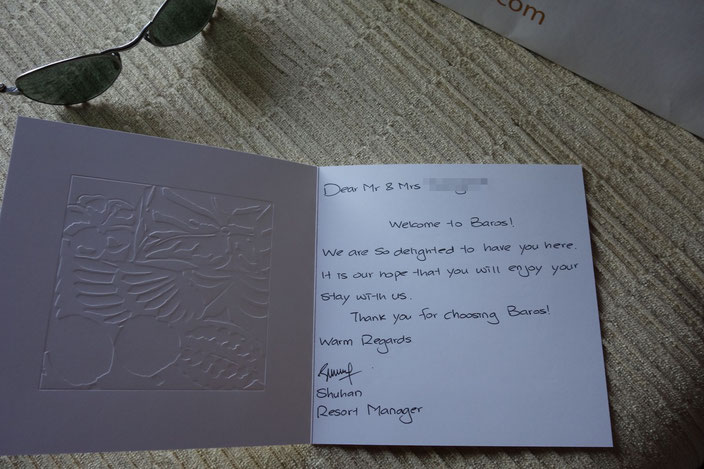 com
Dear Mr & Mrs
Welcome to Baros!
We are so delighted to have you here.
It is our hope that you will enjoy your
stay with us.
Thank you for choosing Baros!
Warm Regards
Shuhan
Resort Manager